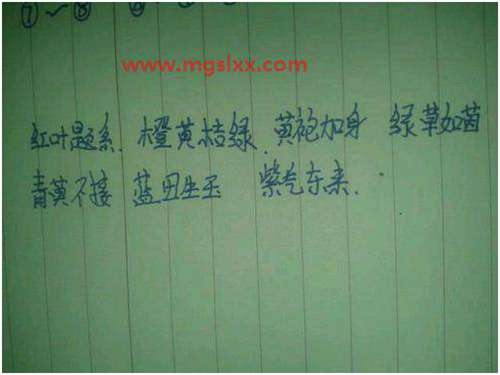 ① ~ ⑧
www.mgslxx.com
红叶题系. 橙黄桔绿. 黄袍加身 绿草如茵
青黄不接 蓝田生玉 紫气东来.